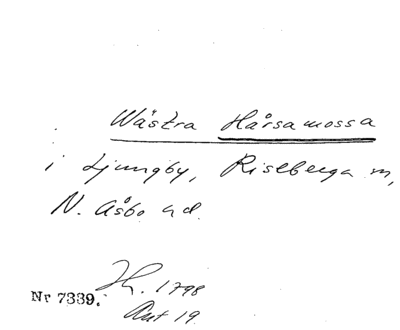 Wästra Hårsamossa
i Ljungby, Riseberga m,
N. Åsbo hd.
H. 1798
Nr 7339.
Aut 19